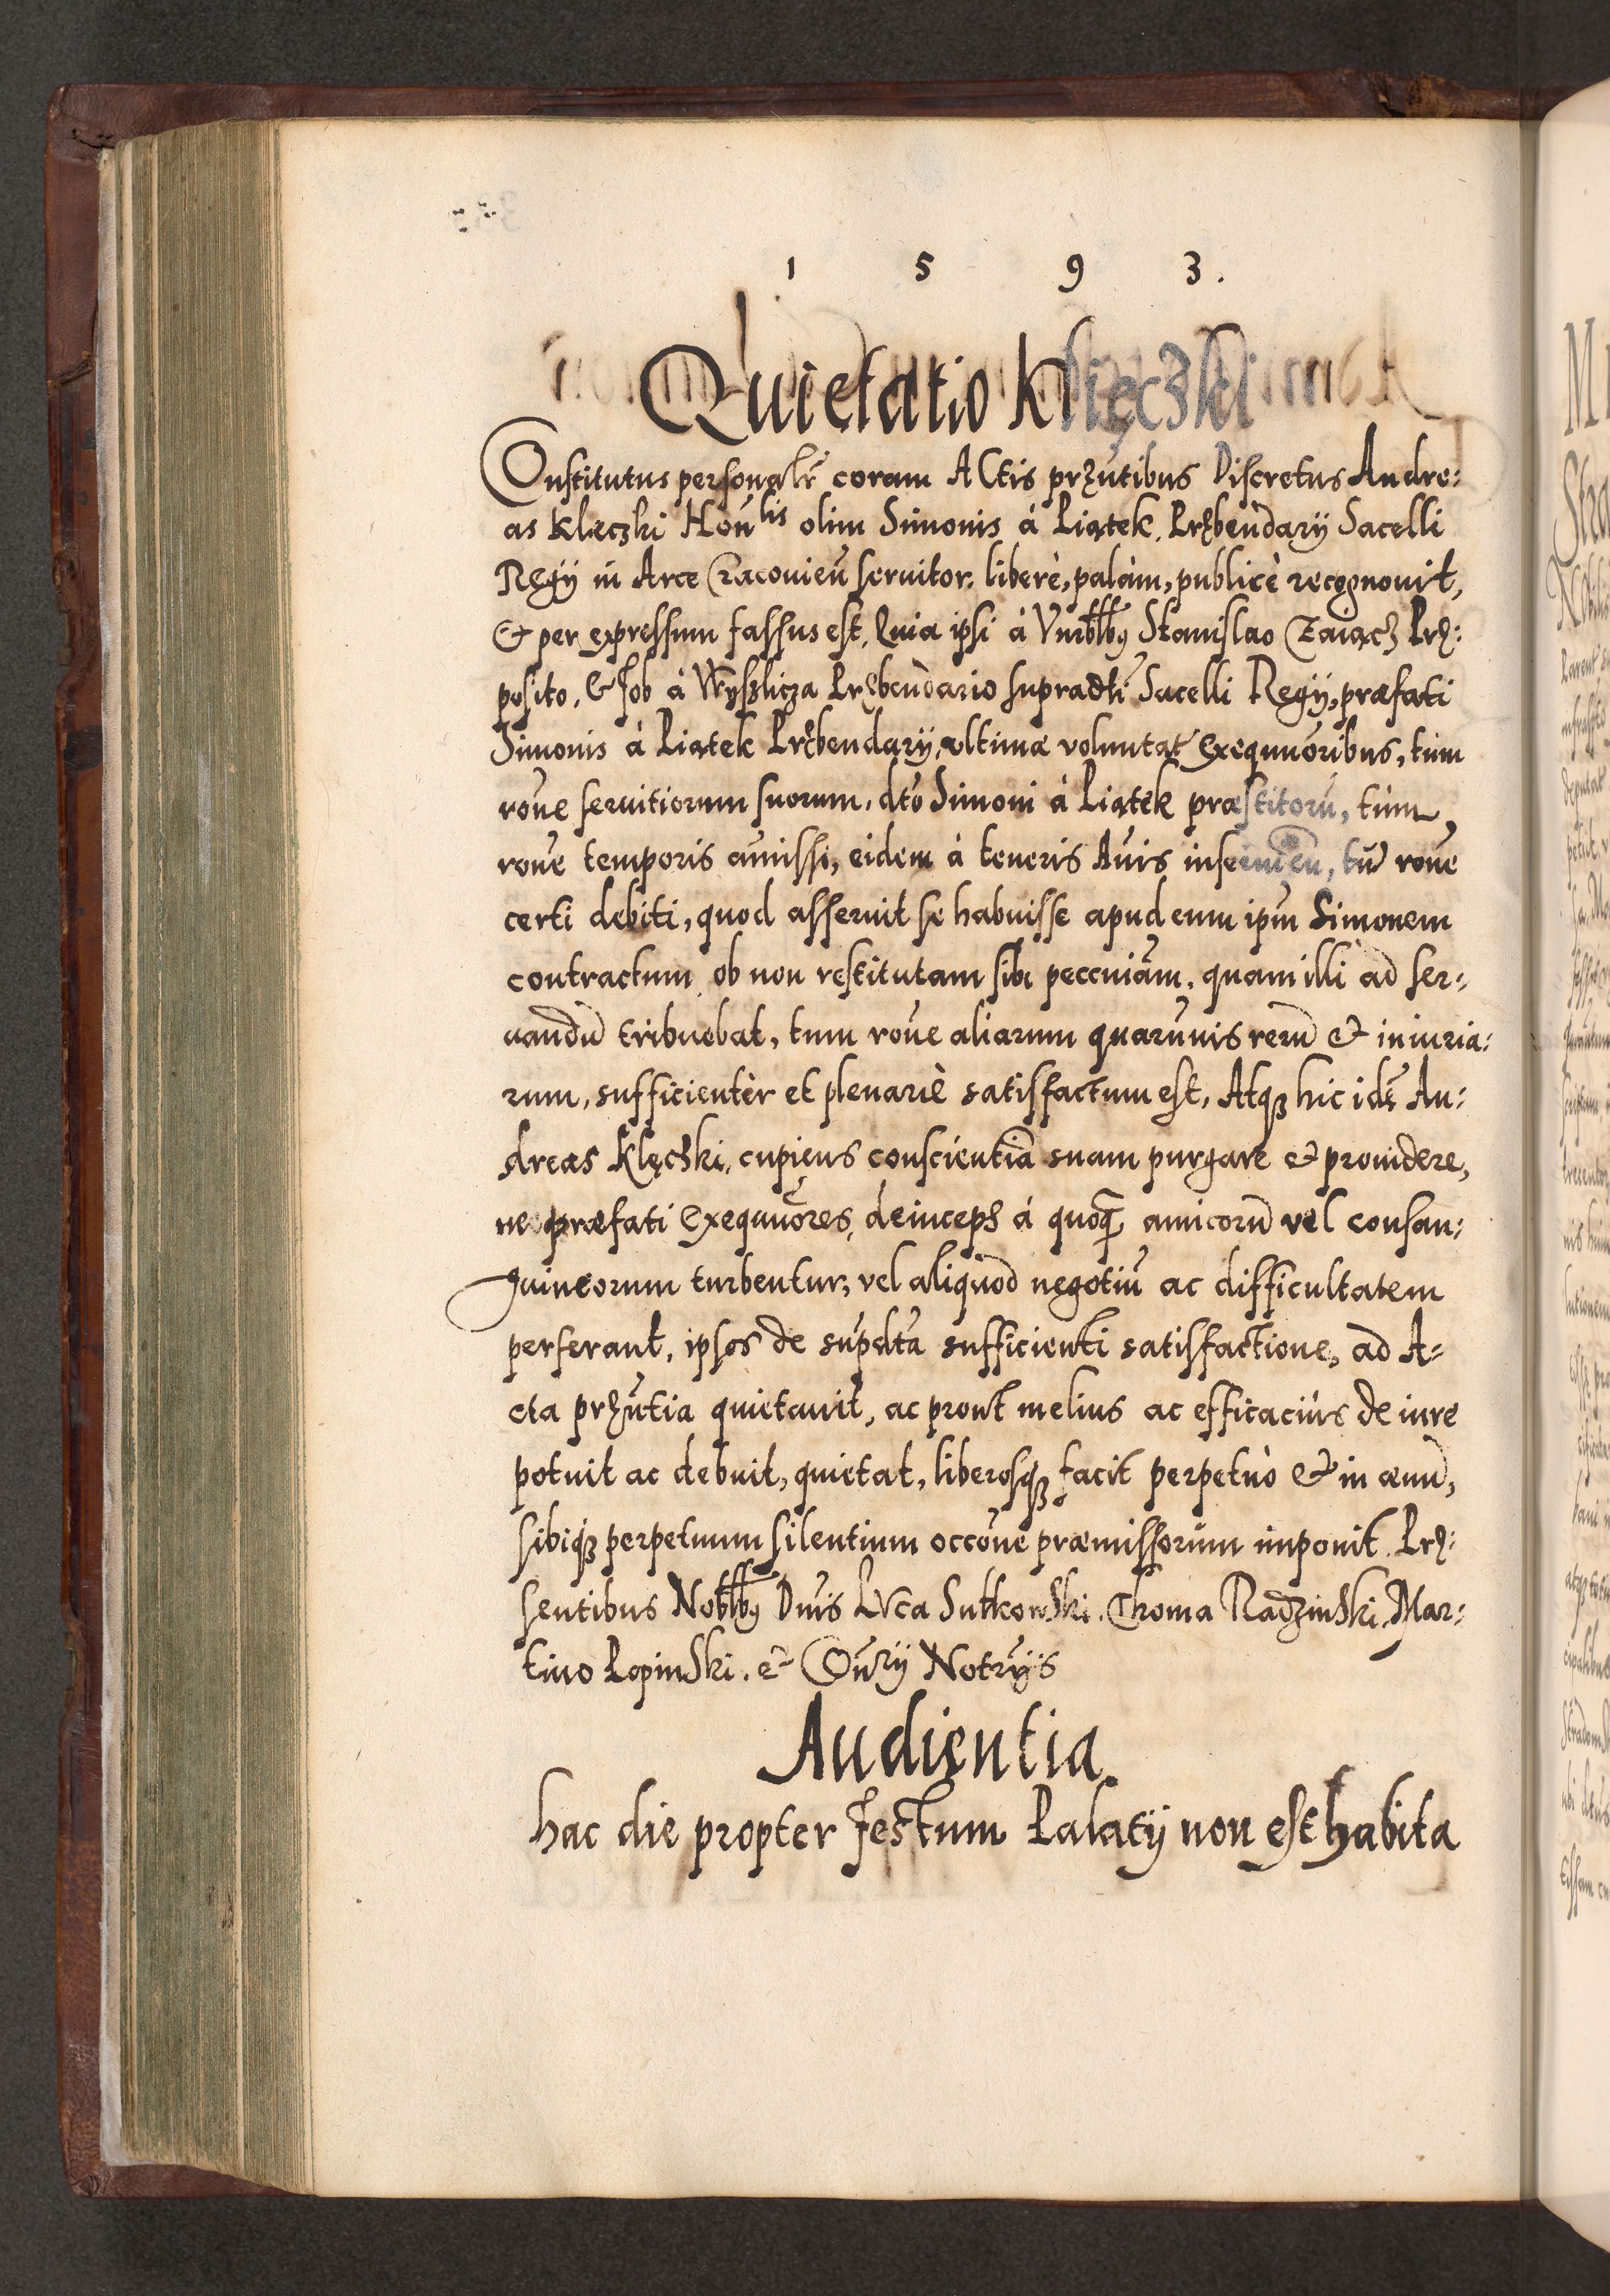 1 5 9 3.
Quietatio Klięczki
Constitutus personalr̃ coram ACtis prȩñtibus Discretus Andre:
as Klęczki Hoñlis olim Simonis à Piątek. Prȩbendarÿ Sacelli
Regÿ in Arce Cracovieñ servitor: liberè, palàm, publicè recognovit,
& per expressum fassus est, Quia ipsi à Vnrblbȝ Stanislao Zaiącz Prȩ:
posito, & Job à Wyszlicza Prȩbendario supradti Sacelli Regÿ, præfati
Simonis à Piątek Prȩbendarÿ, vltimæ voluntat Exequuõribus, tum
roñe servitiorum suorum, dto Simoni à Piątek præstitorũ, tùm,
roñe temporis amissi, eidem à teneris Añis tũ roñe
certi debiti, quod asseruit se habuisse apud eum ipm̃ Simonem
contractum, ob non restitutam sibi peccuniam, quam illi ad ser-
uandũ tribuebat, tum roñe aliarum quarumvis rerũ & iniuria:
rum, sufficientèr et plenariè satisfactum est, Atqȝ hic idẽ An:
dreas Klęcski, cupiens conscientiã suam purgare & providere,
ne præfati Exequuõres, deinceps à quoq̃ amicorũ vel consan:
guineorum turbentur, vel aliquod negotiũ ac difficultatem
perferant, ipsos de sup̃dta sufficienti satisfactione, ad A-
cta prȩñtia quietavit, ac prout melius ac efficaciùs de iure
potuit ac debuit, quietat, liberosqȝ facit perpetuò & in ævũ,
sibiqȝ perpetuum silentium occoñe præmissorum imponit. Prȩ:
sentibus Noblbȝ Dñis LVca Sutkowski. Thoma Radzinski. Mar:
tino Lepinski. & Coñrÿ Notrÿs
Audientia
hac die propter festum Palatÿ non est habita